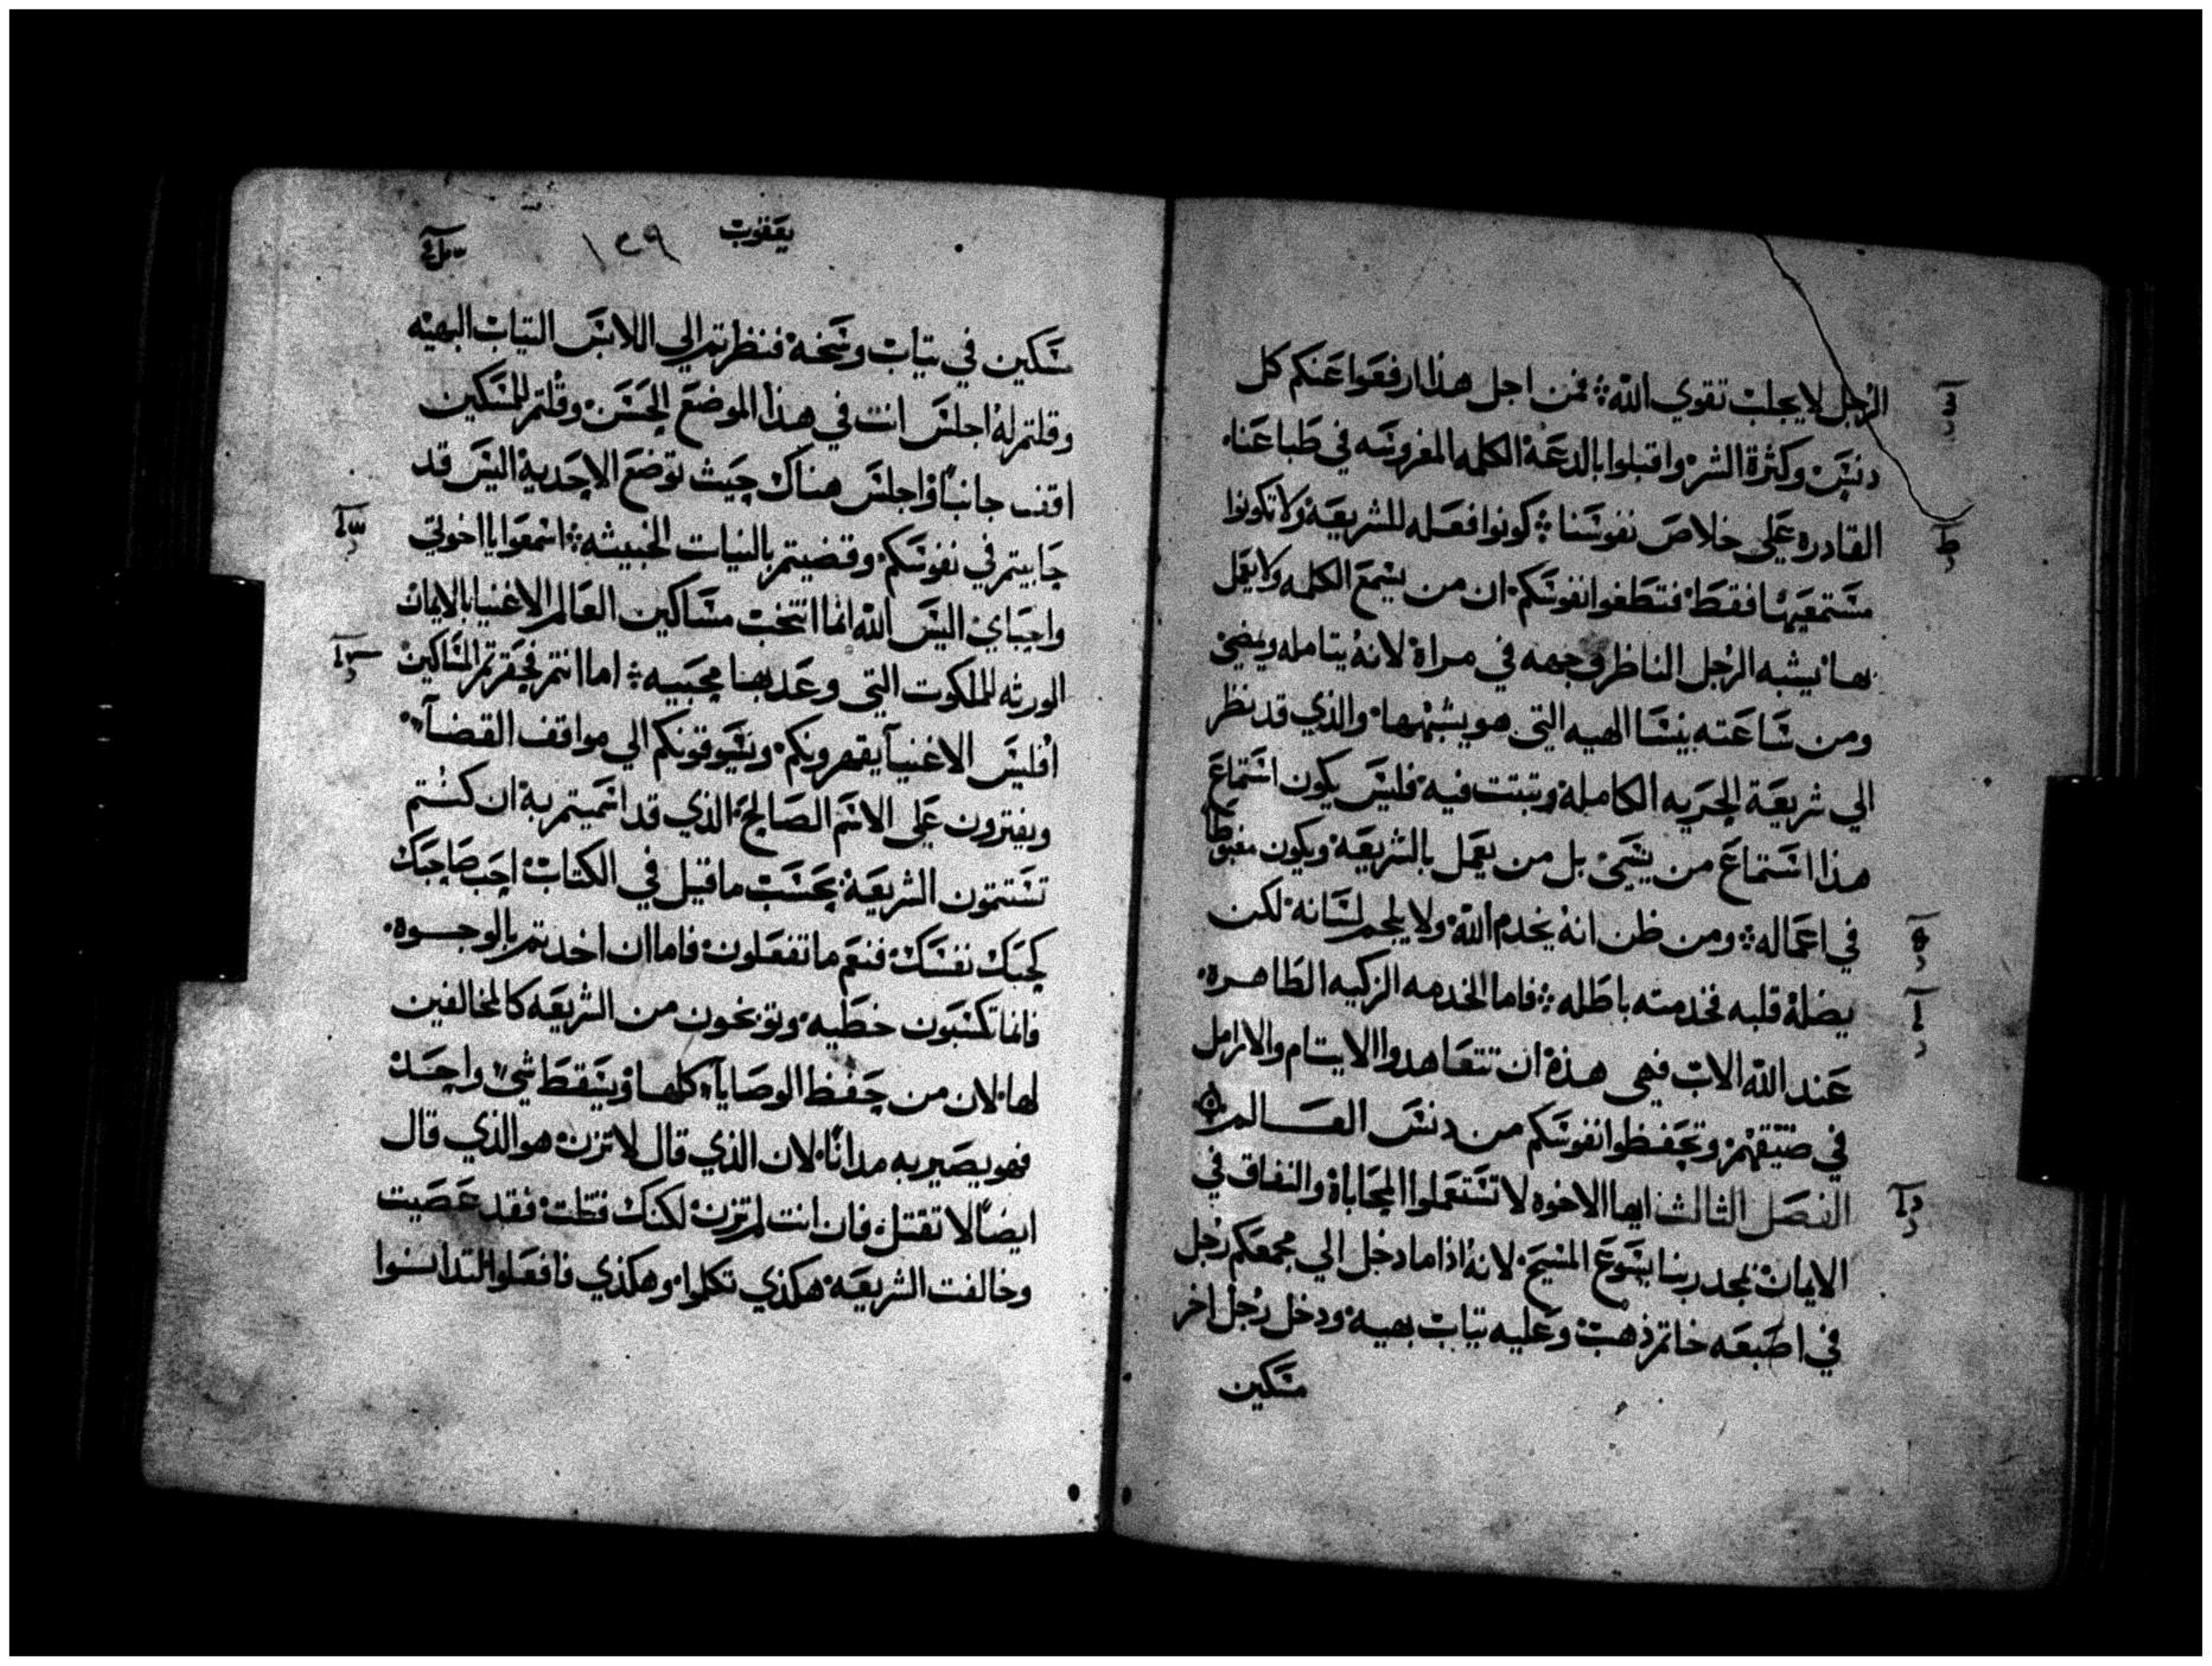 الرجل لا يجلب تقوي الله ܀ فمن اجل هذا ارفعوا عنكم كل
دنس وكثرة الشر واقبلوا بالدعة الكلمه المغروسه في طباعنا
القادره علي خلاص نفوسنا ܀ كونوا فعله للشريعة ولا تكونوا
مستمعيها فقط فتطغوا نفوسكم ان من يسمع الكلمه ولا يعمل
بها يشبه الرجل الناظر وجهه في مراة لانه يتامله ويمضي
ومن ساعته ينسا الهيه التي هو يشبهها والذي قد نظر
الي شريعة الحريه الكاملة وتبتت فيه فليس يكون استماعَ
هذا استماعَ من ينسي بل من يعمل بالشريعة ويكون مغبوطا
في اعماله ܀ ومن ظن انه يخدم الله ولا يلجم لسانه لكن
يضله قلبه فخدمته باطله ܀ فاما الخدمه الزكيه الطاهره
عند الله الاب فهي هذه ان تتعاهدوا الايتام والارامل
في ضيقهم وتحفظوا نفوسكم من دنس العالم
الفصل الثالث ايها الاخوه لا تستعملوا المحاباة والنفاق في
الايمان بمجد ربنا يسوع المسيح لانه اذا ما دخل الي مجمعكم رجل
في اصبعه خاتم ذهب وعليه تياب بهيه ودخل رجل اخر
مسكين
يعقوب
١٤٩
مسكين في تياب وسخه فنظرتم الي اللابس التياب البهيه
وقلتم له اجلس انت في هذا الموضع الحسن وقلتم للمسكين
اقف جانبًا او اجلس هناك حيث توضع الاحدية اليس قد
حابيتم في نفوسكم وقضيتم بالنيات الخبيثه ܀ اسمعوا يا اخوتي
واحباي اليس الله انما انتخب مساكين العالم الاغنيا بالايمان
الورثه للملكوت التي وعد بها محبيه ܀ اما انتم فحقرتم المساكين
افليس الاغنيآ يقهرونكم ونسوقونكم الي مواقف القضآ
ويفترون علي الاسم الصالح الذي قد اسميتم به ان كنتم
تستتمون الشريعة بحسب ما قيل في الكتاب احب صاحبك
كحبك نفسك فنعم ما تفعلون فاما ان اخدتم بالوجوه
فانما تكسبون خطيه وتوبخون من الشريعه كالمخالفين
لها لان من حفظ الوصايآ كلها وينقط شي واحد
فهو يصير به مدانًا لان الذي قال لا تزن هو الذي قال
ايضًا لا تقتل فان انت لم تزن لكنك قتلت فقد عصيت
وخالفت الشريعه هكذي تكلموا وهكذي فافعلوا لتدانوا